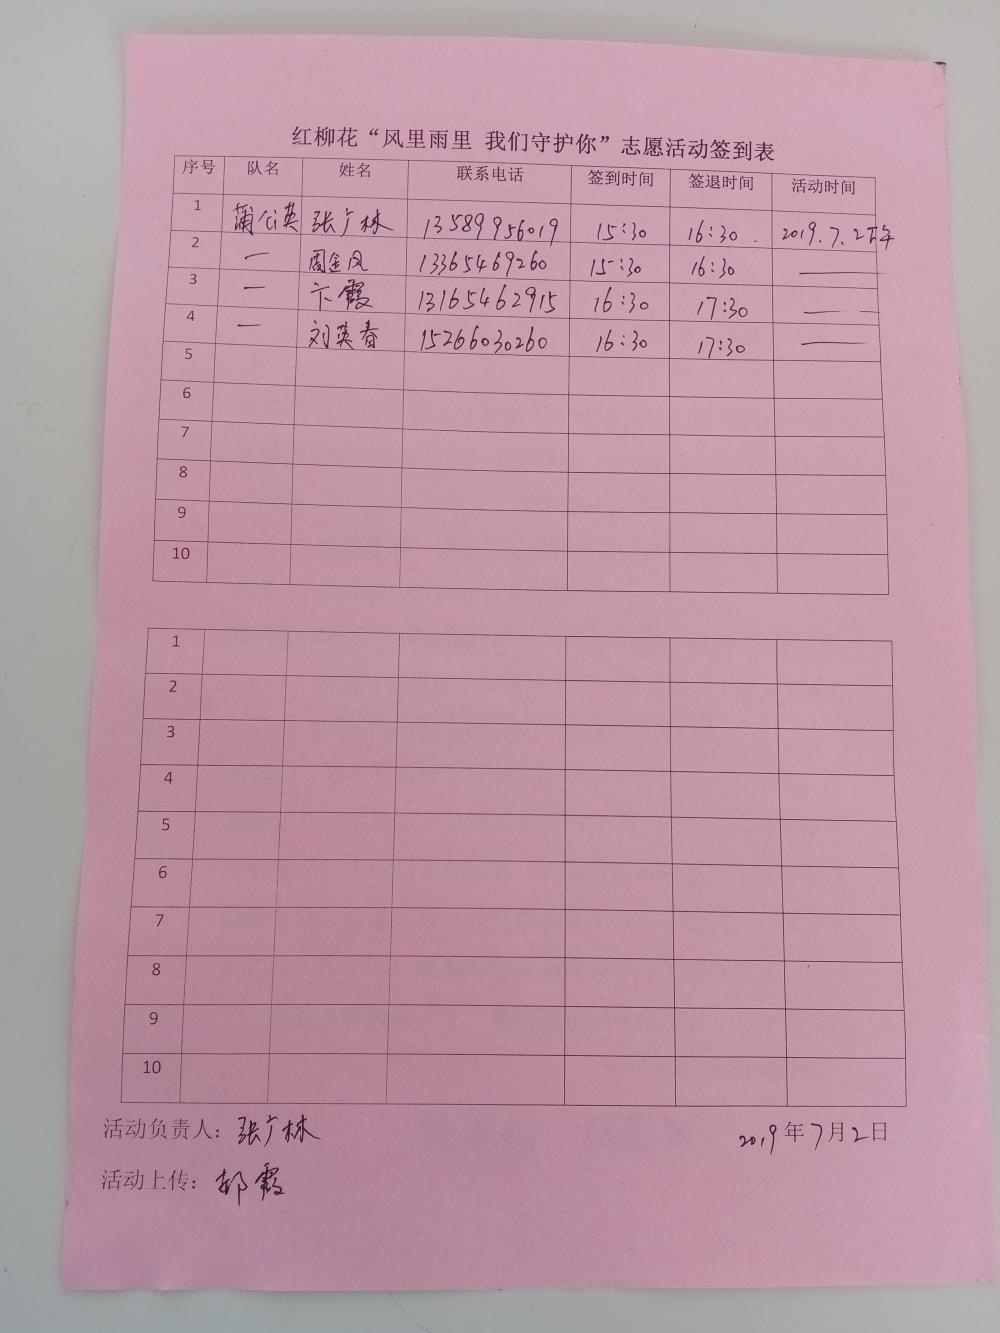 红柳花“风里雨里 我们守护你”志愿活动签到表
序号 队名 姓名 联系电话 签到时间 签退时间 活动时间
1 蒲公英 张广林 13589956019 15:30 16:30 2019.7.2下午
2 — 周金凤 13365469260 15:30 16:30 ——
3 — 卞霞 13165462915 16:30 17:30 ——
4 — 刘英春 15266030260 16:30 17:30 ——
5
6
7
8
9
10
1
2
3
4
5
6
7
8
9
10
活动负责人：张广林 2019年7月2日
活动上传：郝霞